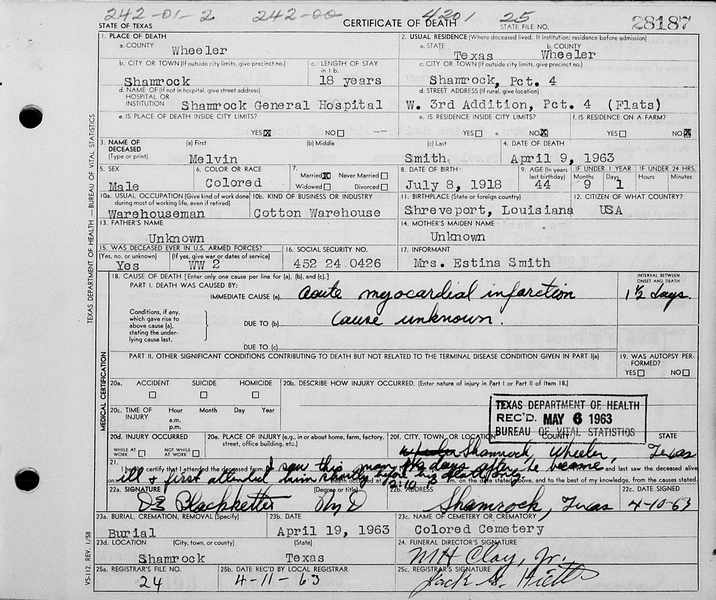 242-01-2 242-00 4201 25
STATE OF TEXAS CERTIFICATE OF DEATH STATE FILE NO. 28187
1. PLACE OF DEATH 2. USUAL RESIDENCE (Where deceased lived. If institution: residence before admission)
a. COUNTY Wheeler a. STATE Texas b. COUNTY Wheeler
b. CITY OR TOWN (If outside city limits, give precinct no.) c. LENGTH OF STAY in 1 b. c. CITY OR TOWN (If outside city limits, give precinct no.)
Shamrock 18 years Shamrock, Pct. 4
d. NAME OF (If not in hospital, give street address) HOSPITAL OR INSTITUTION d. STREET ADDRESS (If rural, give location)
Shamrock General Hospital W. 3rd Addition, Pct. 4 (Flats)
e. IS PLACE OF DEATH INSIDE CITY LIMITS? e. IS RESIDENCE INSIDE CITY LIMITS? f. IS RESIDENCE ON A FARM?
YES NO YES NO YES NO
3. NAME OF DECEASED (Type or print) (a) First (b) Middle (c) Last 4. DATE OF DEATH
Melvin Smith April 9, 1963
5. SEX 6. COLOR OR RACE 7. Married Never Married Widowed Divorced 8. DATE OF BIRTH 9. AGE (In years last birthday) IF UNDER 1 YEAR IF UNDER 24 HRS.
Months Days Hours Minutes
Male Colored July 8, 1918 44 9 1
10a. USUAL OCCUPATION (Give kind of work done during most of working life, even if retired) 10b. KIND OF BUSINESS OR INDUSTRY 11. BIRTHPLACE (State or foreign country) 12. CITIZEN OF WHAT COUNTRY?
Warehouseman Cotton Warehouse Shreveport, Louisiana USA
13. FATHER'S NAME 14. MOTHER'S MAIDEN NAME
Unknown Unknown
15. WAS DECEASED EVER IN U.S. ARMED FORCES? 16. SOCIAL SECURITY NO. 17. INFORMANT
(Yes, no, or unknown) (If yes, give war or dates of service)
Yes WW 2 452 24 0426 Mrs. Estina Smith
18. CAUSE OF DEATH [Enter only one cause per line for (a), (b), and (c).] INTERVAL BETWEEN ONSET AND DEATH
PART I. DEATH WAS CAUSED BY:
IMMEDIATE CAUSE (a) acute myocardial infarction 1½ days.
Conditions, if any, which gave rise to above cause (a), stating the underlying cause last.
DUE TO (b) cause unknown.
DUE TO (c)
PART II. OTHER SIGNIFICANT CONDITIONS CONTRIBUTING TO DEATH BUT NOT RELATED TO THE TERMINAL DISEASE CONDITION GIVEN IN PART I(a) 19. WAS AUTOPSY PERFORMED?
YES NO
20a. ACCIDENT SUICIDE HOMICIDE 20b. DESCRIBE HOW INJURY OCCURRED. (Enter nature of injury in Part I or Part II of item 18.)
20c. TIME OF INJURY Hour Month Day Year
a.m.
p.m.
TEXAS DEPARTMENT OF HEALTH
REC'D. MAY 6 1963
BUREAU OF VITAL STATISTICS
20d. INJURY OCCURRED 20e. PLACE OF INJURY (e.g., in or about home, farm, factory, street, office building, etc.) 20f. CITY, TOWN, OR LOCATION COUNTY STATE
WHILE AT WORK NOT WHILE AT WORK Shamrock, Wheeler, Texas
21. I certify that I attended the deceased from I saw this man days after he became and last saw the deceased alive
ill & first attended him shortly m. on the date stated above, and to the best of my knowledge, from the causes stated.
22a. SIGNATURE (Degree or title) 22b. ADDRESS 22c. DATE SIGNED
Blackketter M D Shamrock, Texas 4-10-63
23a. BURIAL, CREMATION, REMOVAL (Specify) 23b. DATE 23c. NAME OF CEMETERY OR CREMATORY
Burial April 19, 1963 Colored Cemetery
23d. LOCATION (City, town, or county) (State) 24. FUNERAL DIRECTOR'S SIGNATURE
Shamrock Texas M H Clay, Jr.
25a. REGISTRAR'S FILE NO. 25b. DATE REC'D BY LOCAL REGISTRAR 25c. REGISTRAR'S SIGNATURE
24 4-11-63 Jack
TEXAS DEPARTMENT OF HEALTH — BUREAU OF VITAL STATISTICS
MEDICAL CERTIFICATION
VS-112 REV. 1/58